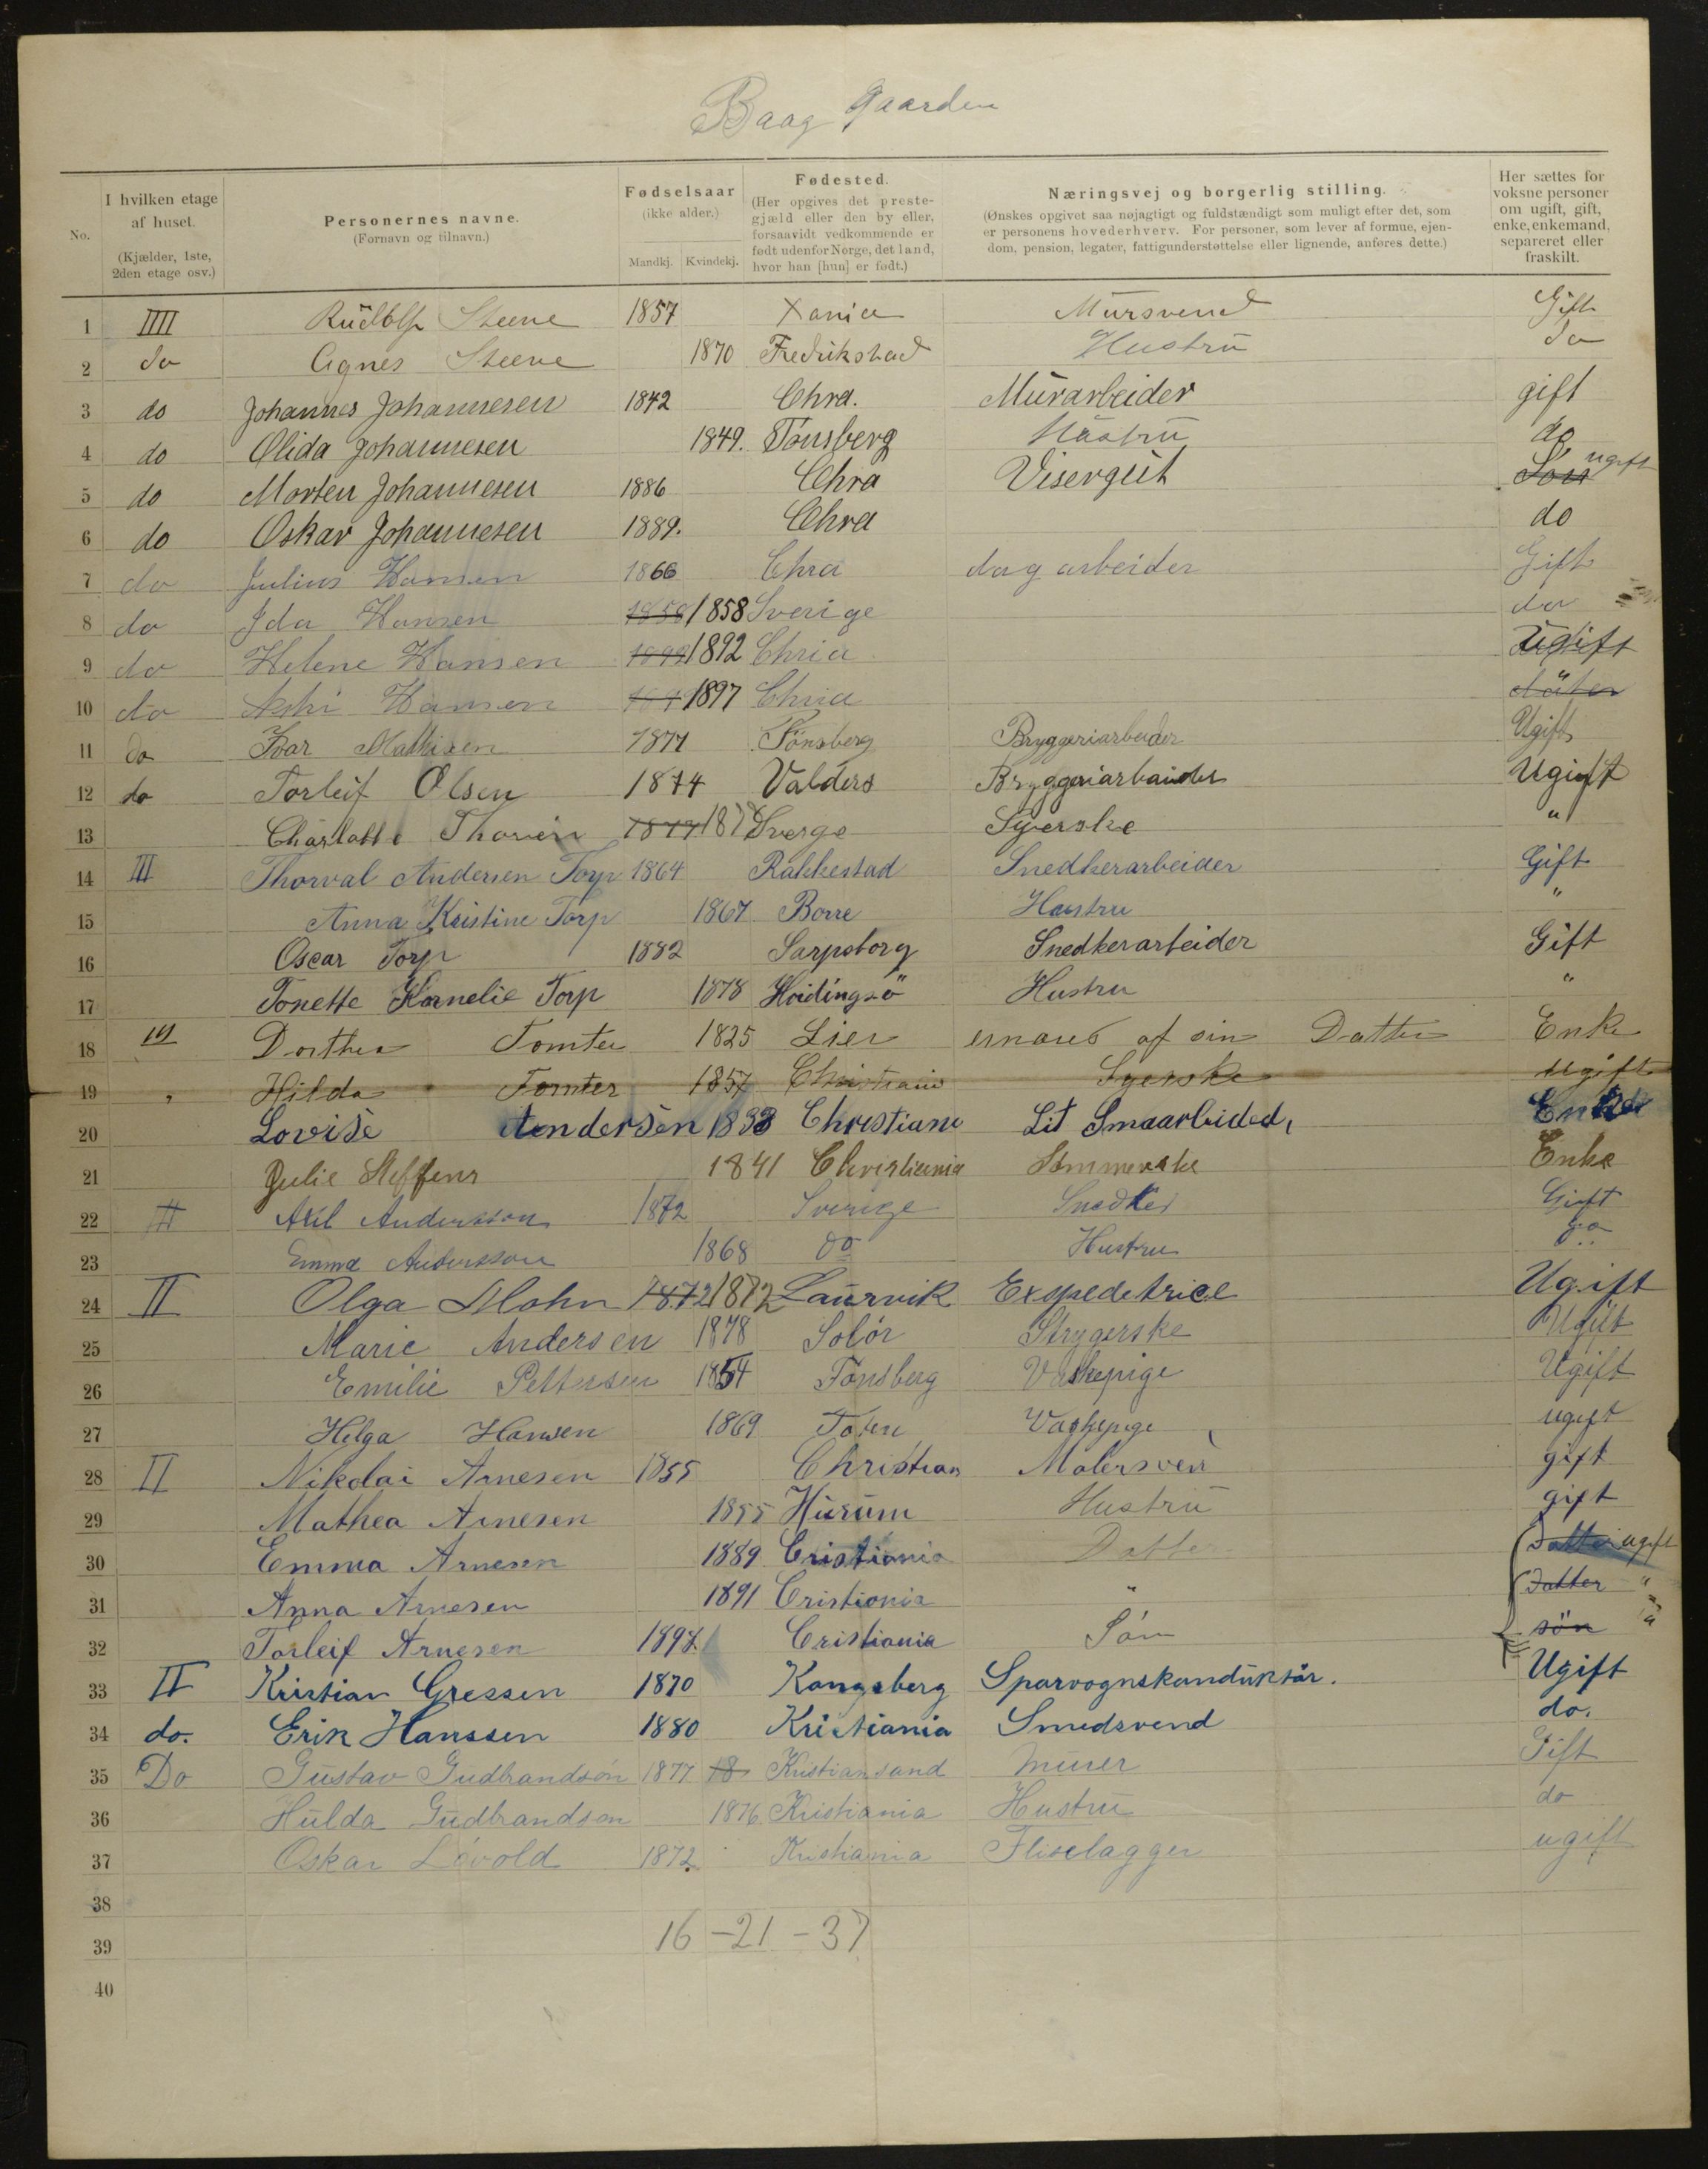 Baag gaarden
No. | I hvilken etage af huset. (Kjælder, 1ste, 2den etage osv.) | Personernes navne. (Fornavn og tilnavn.) | Fødselsaar (ikke alder.) Mandkj. Kvindekj. | Fødested. (Her opgives det prestegjæld eller den by eller, forsaavidt vedkommende er født udenfor Norge, det land, hvor han [hun] er født.) | Næringsvej og borgerlig stilling. (Ønskes opgivet saa nøjagtigt og fuldstændigt som muligt efter det, som er personens hovederhverv. For personer, som lever af formue, ejendom, pension, legater, fattigunderstøttelse eller lignende, anføres dette.) | Her sættes for voksne personer om ugift, gift, enke, enkemand, separeret eller fraskilt.
1 IIII Rudolf Steene 1857 Xania Mursvend Gift
2 do Agnes Steene 1870 Fredrikstad Hustru do
3 do Johannes Johannesen 1842 Chra. Murarbeider gift
4 do Olida Johannesen 1849. Tønsberg Hustru do
5 do Morten Johannesen 1886 Chra Visergut Søn ugift
6 do Oskar Johannesen 1889. Chra do
7 do Julius Hansen 1866 Chra dagarbeider Gift
8 do Ida Hansen 1858 1858 Sverige do
9 do Helene Hansen 1892 1892 Chria Ugift
10 do Hansen 1897 Chria
11 do Ivar Mathisen 1877 Tønsberg Bryggeriarbeider Ugift
12 do Torleif Olsen 1874 Valders Bryggeriarbaider Ugift
13 Charlotte Thorén Sverge Syerske "
14 III Thorval Andersen Torp 1864 Rakkestad Snedkerarbeider Gift
15 Anna Kristine Torp 1867 Borre Hustru "
16 Oscar Torp 1882 Sarpsborg Snedkerarbeider Gift
17 Tonette Kornelie Torp 1878 Hvidingsö Hustru "
18 III Dorthea Tomter 1825 Lier ernæres af sin Datter Enke
19 " Hilda Tomter 1857 Christiania Syerske ugift
20 Lovise Andersen 1838 Christiane Lit Smaarbided, Enke
21 Julie Steffens 1841 Christiania Sømmerske Enke
22 II Axel Andersson 1872 Sverige Snedker Gift
23 Emma Andersson 1868 do Hustru do
24 II Olga Mohn 1872 1872 Laurvik Expeditrice Ugift
25 Marie Andersen 1878 Solör Strygerske Ugift
26 Emilie Pettersen 1854 Tønsberg Vaskepige Ugift
27 Helga Hansen 1869 Toten Vaskepige ugift
28 II Nikolai Arnesen 1855 Christian Malersven gift
29 Mathea Arnesen 1855 Hurum Hustru gift
30 Emma Arnesen 1889 Cristiania Datte Datter ugift
31 Anna Arnesen 1891 Cristiania " Datter "
32 Torleif Arnesen 1898 Cristiania Søn søn "
33 II Kristian Gressen 1870 Kongsberg Sporvognskonduktør. Ugift
34 do. Erik Hanssen 1880 Kristiania Smedsvend do.
35 Do Gustav Gudbrandson 1877 18 Kristiansand Murer Gift
36 Hulda Gudbrandson 1876. Kristiania Hustru do
37 Oskar Lövold 1872. Kristiania Fliselagger ugift
38
39 16 - 21 - 37
40